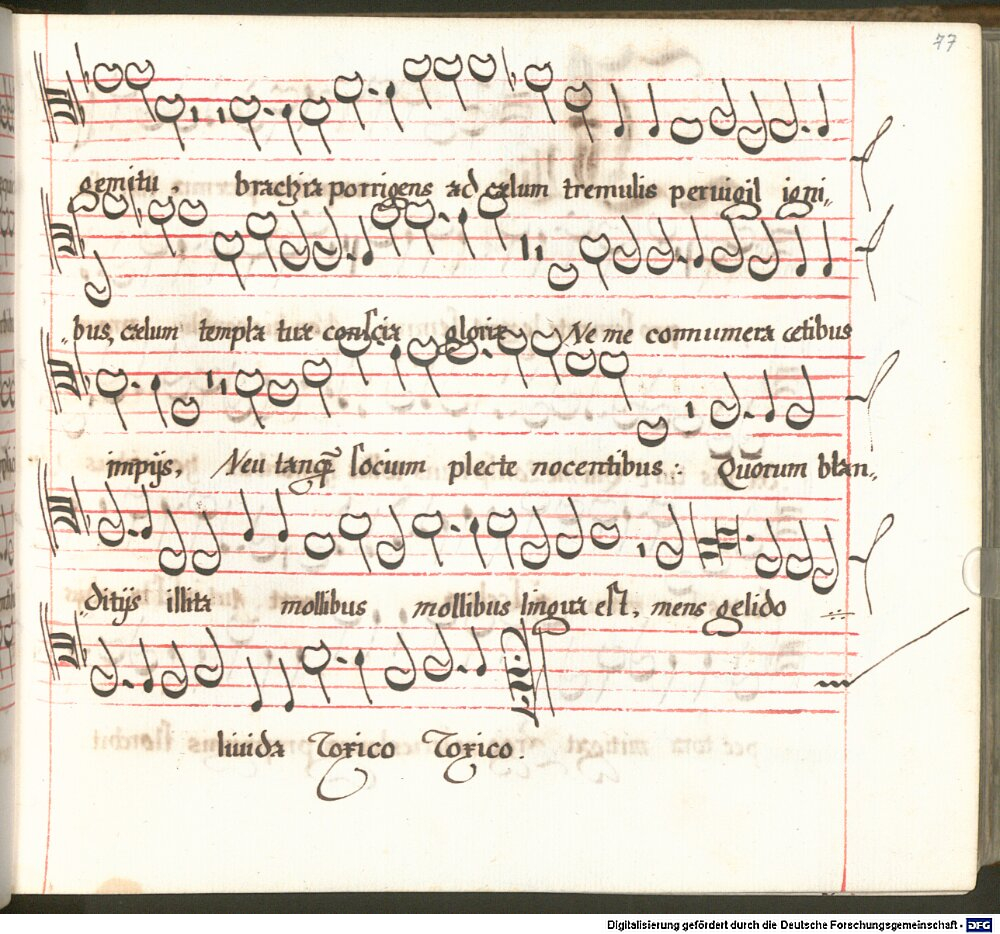 77
gemitu, brachia porrigens ad cælum tremulis peruigil igni„
„bus, cælum templa tuæ conscia gloriæ Ne me connumera cetibus
impijs, Neu tanq̃ socium plecte nocentibus: Quorum blan„
„ditijs illita mollibus mollibus lingua est, mens gelido
liuida Toxico Toxico.
Digitalisierung gefördert durch die Deutsche Forschungsgemeinschaft - DFG